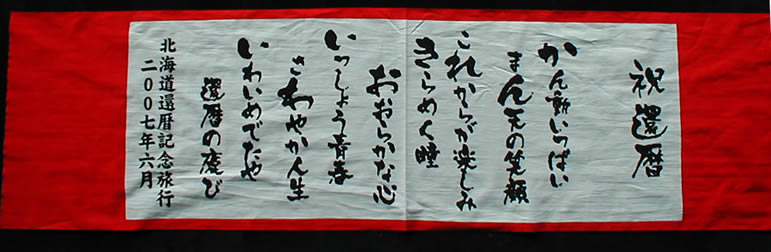 祝還暦
かん動いっぱい
まん天の笑顔
これからが楽しみ
きらめく瞳
おおらかな心
いっしょう青春
さわやか人生
いわいめでたや
還暦の慶び
北海道還暦記念旅行
二〇〇七年六月